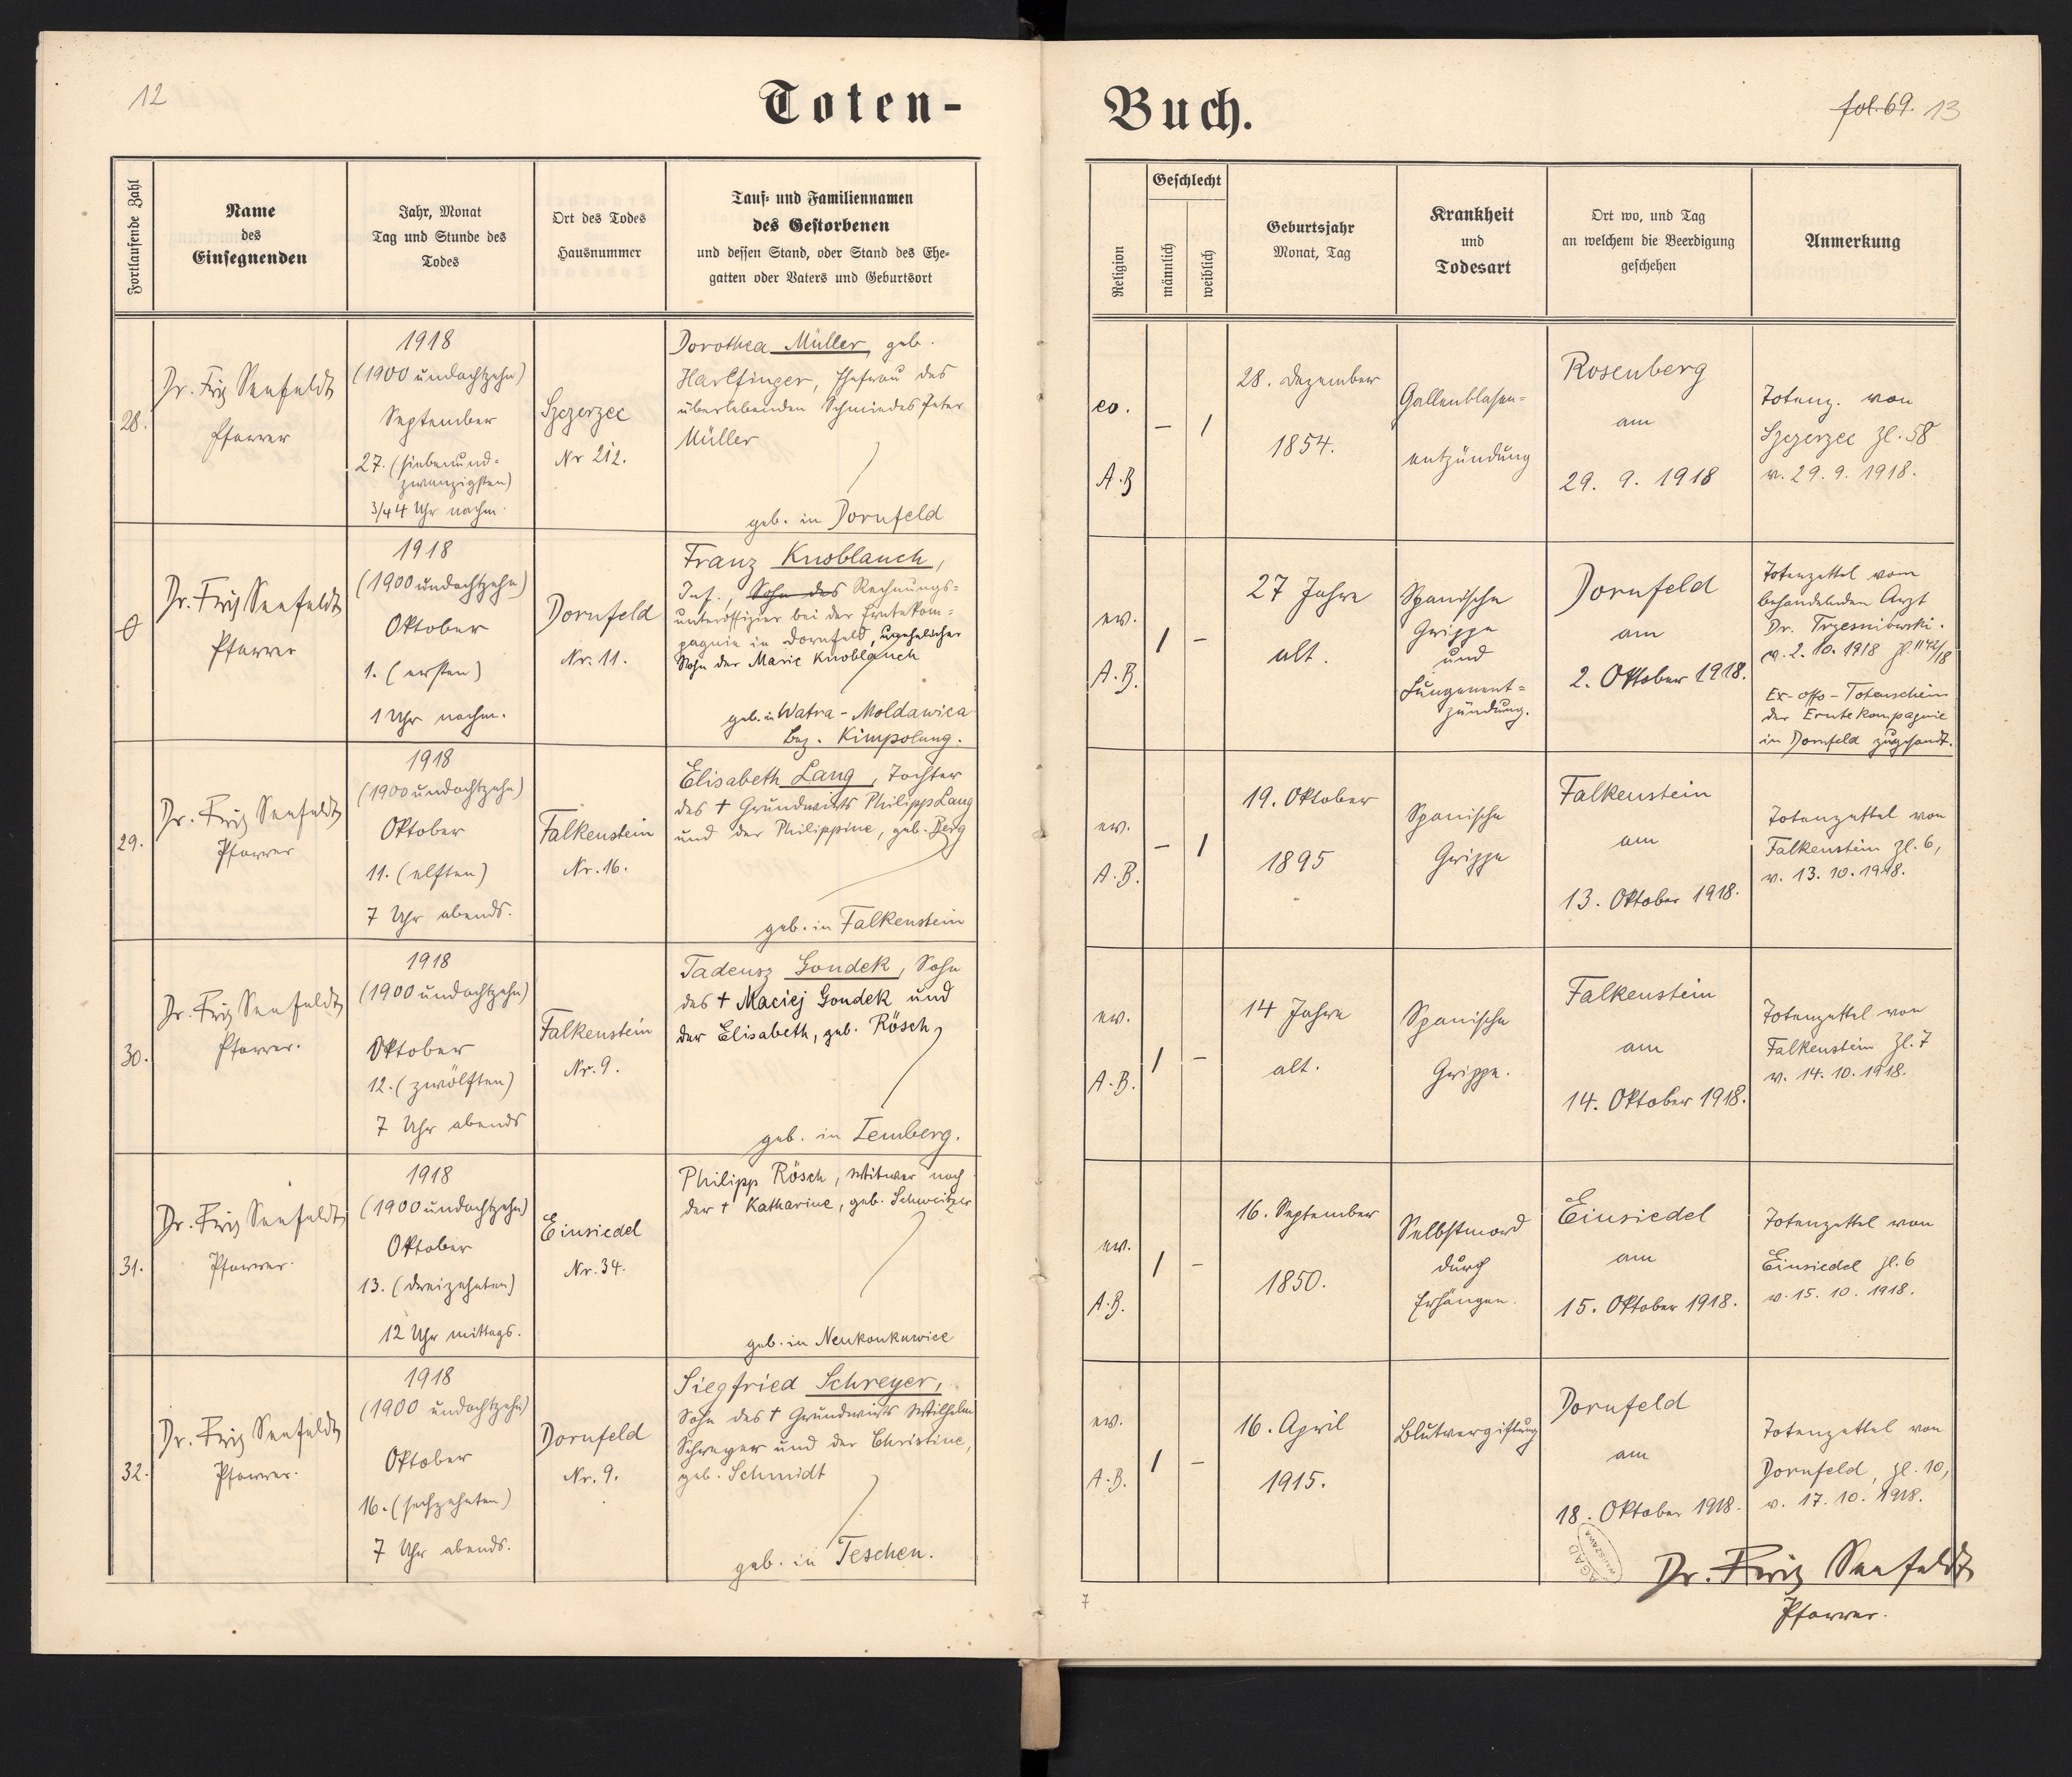 12
Toten-
Fortlaufende Zahl
Name
des
Einsegnenden
Jahr, Monat
Tag und Stunde des
Todes
Ort des Todes
Hausnummer
Tauf- und Familiennamen
des Gestorbenen
und dessen Stand, oder Stand des Ehe-
gatten oder Vaters und Geburtsort
28.
Dr. Fritz Seefeldt
Pfarrer
1918
(1900 undachtzehn)
September
27. (siebenund-
zwanzigsten)
3/4 4 Uhr nachm.
Szczerzec
Nr 212.
Dorothea Müller, geb.
Harlfinger, Ehefrau des
überlebenden Schmiedes Peter
Müller
geb. in Dornfeld
0
Dr. Fritz Seefeldt
Pfarrer
1918
(1900 undachtzehn)
Oktober
1. (ersten)
1 Uhr nachm.
Dornfeld
Nr. 11.
Franz Knoblauch,
Inf., Sohn des Rechnungs-
unteroffizier bei der Erntekom-
pagnie in Dornfeld, unehelicher
Sohn der Marie Knoblauch
geb. in Watra-Moldawica
Bez. Kimpolung.
29.
Dr. Fritz Seefeldt
Pfarrer
1918
(1900 undachtzehn)
Oktober
11. (elften)
7 Uhr abends.
Falkenstein
Nr. 16.
Elisabeth Lang, Tochter
des † Grundwirts Philipp Lang
und der Philippine, geb. Berg
geb. in Falkenstein
30.
Dr. Fritz Seefeldt
Pfarrer.
1918
(1900 undachtzehn)
Oktober
12. (zwölften)
7 Uhr abends
Falkenstein
Nr. 9.
Tadeusz Gondek, Sohn
des † Maciej Gondek und
der Elisabeth, geb. Rösch,
geb. in Lemberg.
31.
Dr. Fritz Seefeldt
Pfarrer.
1918
(1900 undachtzehn)
Oktober
13. (dreizehnten)
12 Uhr mittags.
Einsiedel
Nr. 34.
Philipp Rösch, Witwer nach
der † Katharine, geb. Schweitzer
geb. in Neukonkuwice
32.
Dr. Fritz Seefeldt
Pfarrer.
1918
(1900 undachtzehn)
Oktober
16. (sechzehnten)
7 Uhr abends.
Dornfeld
Nr. 9.
Siegfried Schreyer,
Sohn des † Grundwirts Wilhelm
Schreyer und der Christine,
geb. Schmidt
geb. in Teschen.
Buch.
fol. 69. 13
Religion
Geschlecht
männlich
weiblich
Geburtsjahr
Monat, Tag
Krankheit
und
Todesart
Ort wo, und Tag
an welchem die Beerdigung
geschehen
Anmerkung
ev.
A.B
— 1
28. Dezember
1854.
Gallenblasen-
entzündung
Rosenberg
am
29. 9. 1918
Totenz. von
Szczerzec Zl. 58
v. 29. 9. 1918.
ev.
A.B.
1 —
27 Jahre
alt.
Spanische
Grippe
und
Lungenent-
zündung.
Dornfeld
am
2. Oktober 1918.
Totenzettel vom
behandelnden Arzt
Dr. Trzesniowski.
v. 2. 10. 1918 Zl. 1142/18
Ex-offo-Totenschein
der Erntekompagnie
in Dornfeld zugesandt.
ev.
A.B.
— 1
19. Oktober
1895
Spanische
Grippe
Falkenstein
am
13. Oktober 1918.
Totenzettel von
Falkenstein Zl. 6,
v. 13. 10. 1918.
ev.
A.B.
1 —
14 Jahre
alt.
Spanische
Grippe.
Falkenstein
am
14. Oktober 1918.
Totenzettel von
Falkenstein Zl. 7
v. 14. 10. 1918.
ev.
A.B.
1 —
16. September
1850.
Selbstmord
durch
Erhängen.
Einsiedel
am
15. Oktober 1918.
Totenzettel von
Einsiedel Zl. 6
v. 15. 10. 1918.
ev.
A.B.
1 —
16. April
1915.
Blutvergiftung
Dornfeld
am
18. Oktober 1918.
Totenzettel von
Dornfeld, Zl. 10,
v. 17. 10. 1918.
AGAD
WARSZAWA
Dr. Fritz Seefeldt
Pfarrer.
7